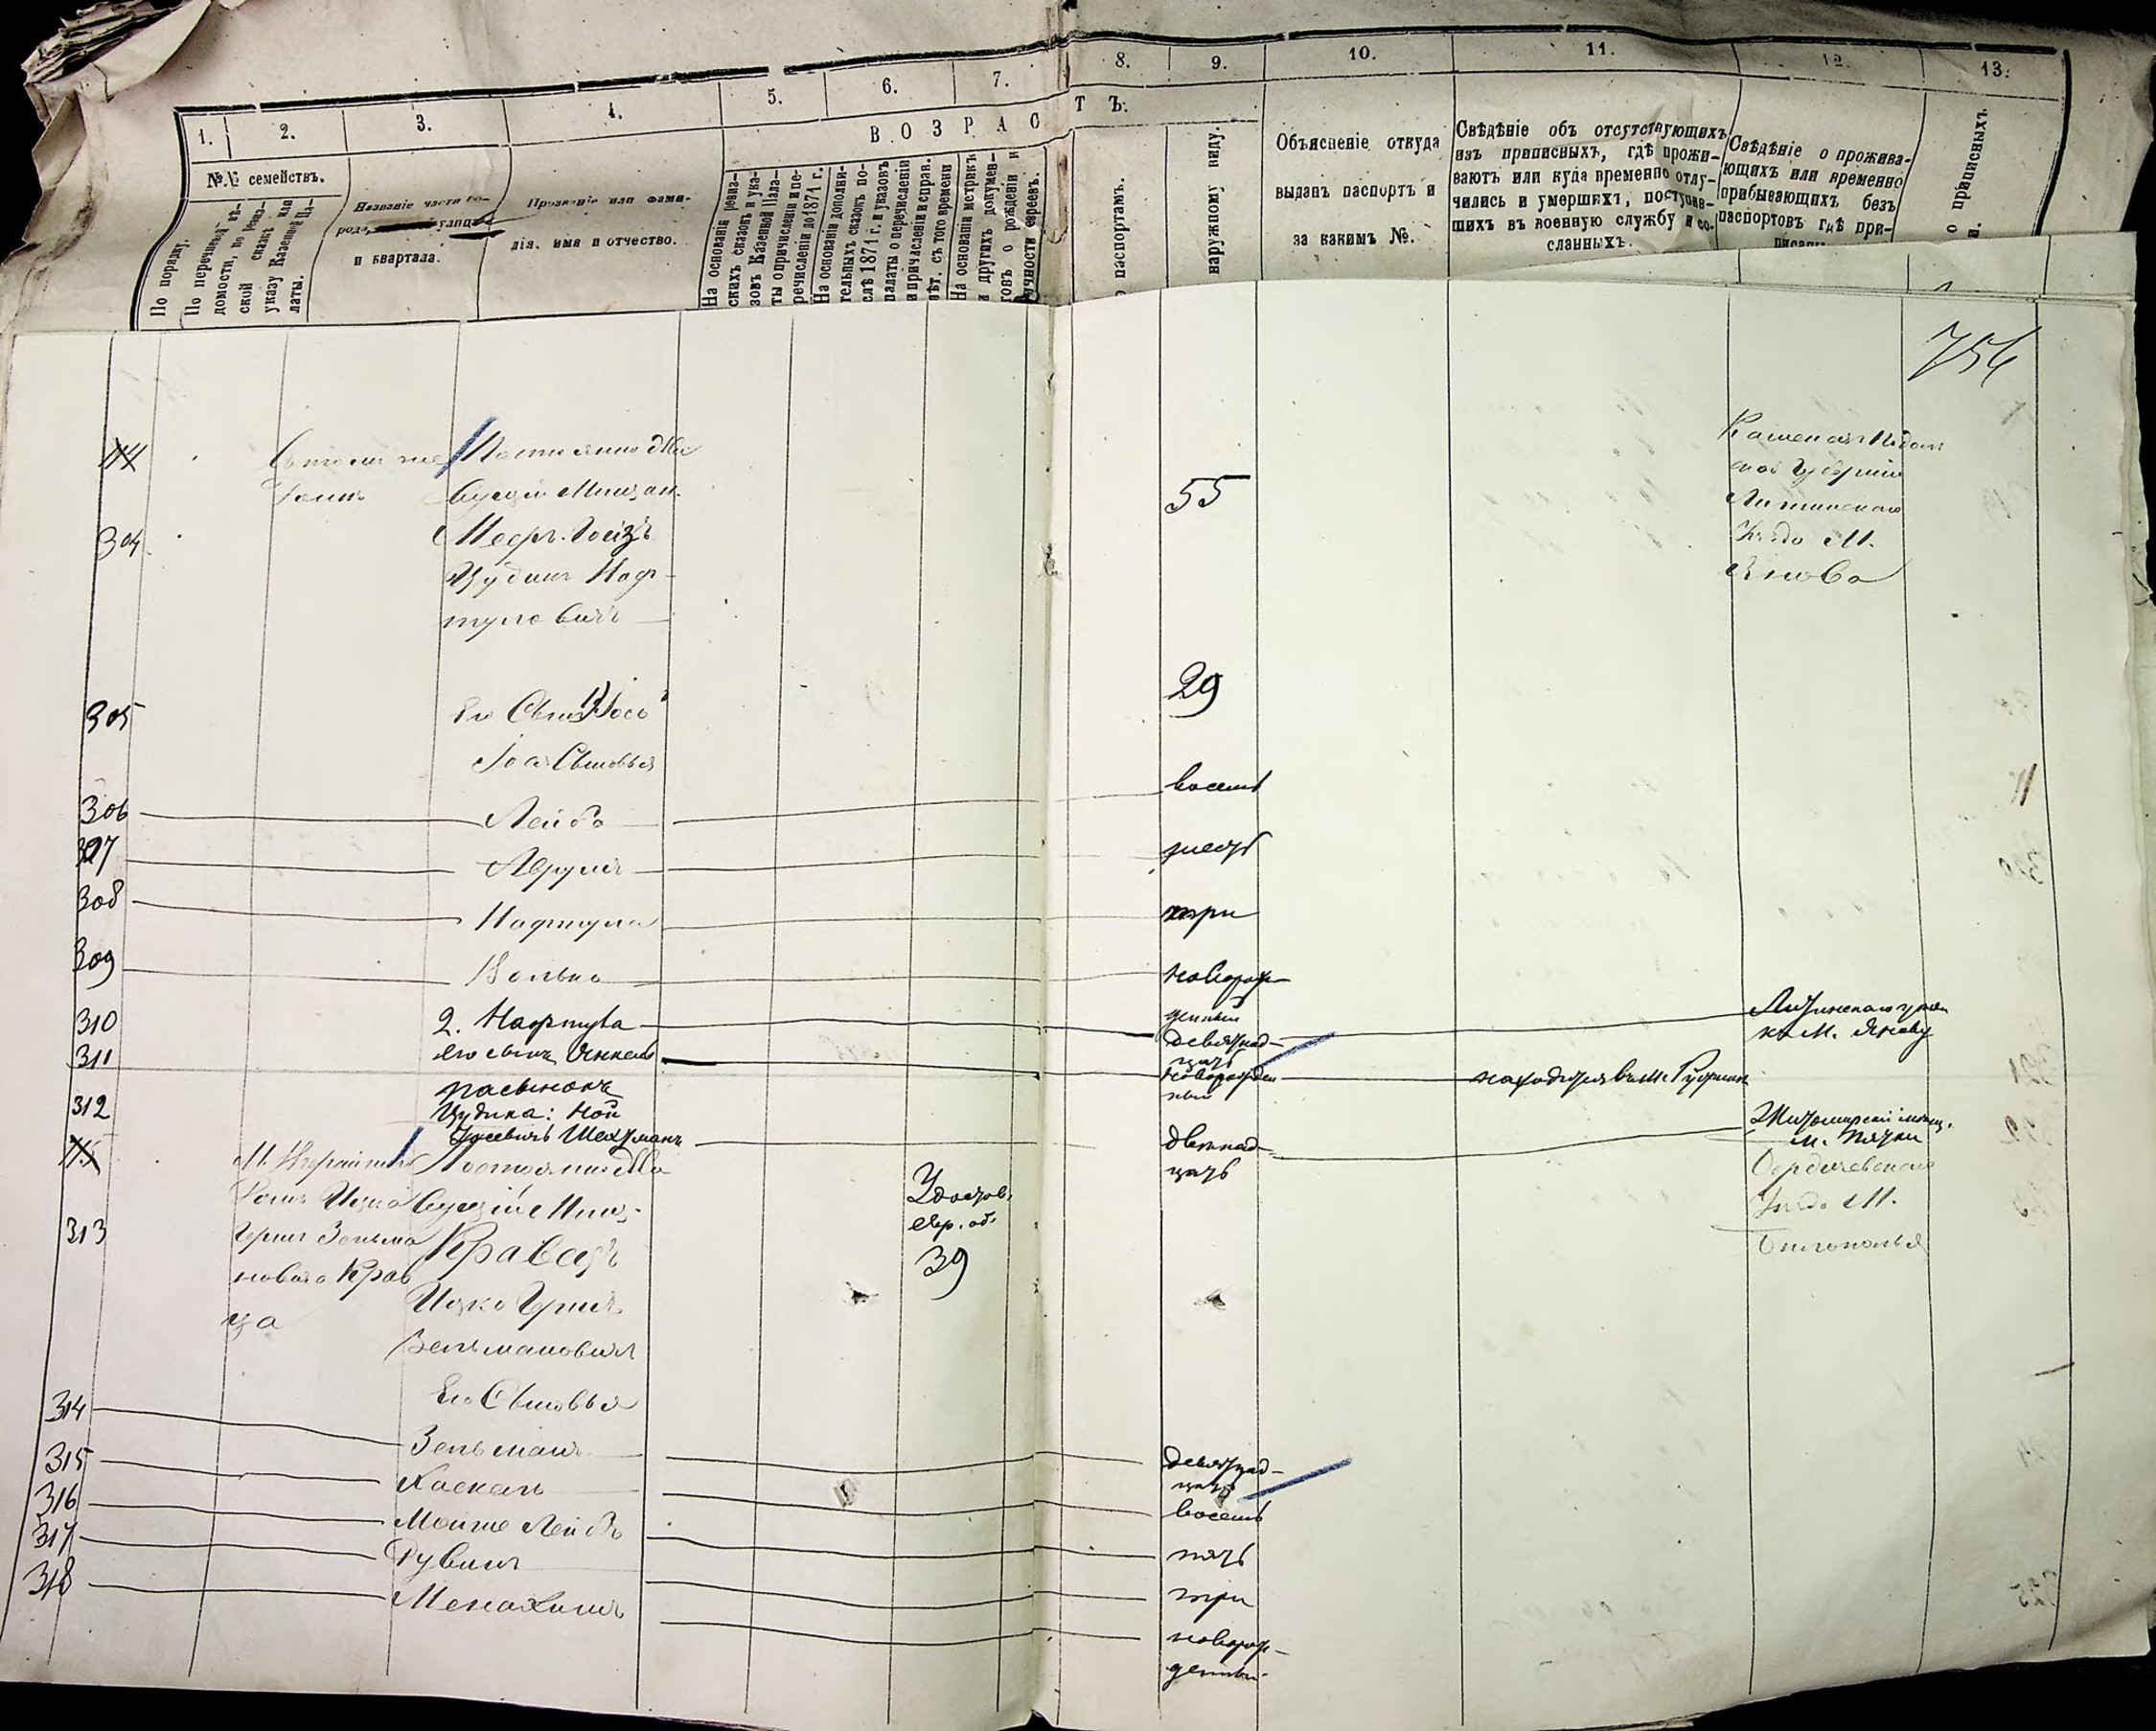 1.
2.
3.
4.
5.
6.
7.
8.
9.
10.
11.
12.
13.
№.№ семействъ.
По порядку.
По перечневой вѣ-
домости, по ревиз-
ской сказкѣ или
указу Казенной Па-
латы.
Названіе части го-
рода, улицы
и квартала.
Прозваніе или фами-
лія, имя и отчество.
ВОЗРАСТЪ.
На основаніи ревиз-
скихъ сказокъ и ука-
зовъ Казенной Пала-
ты о причисленіи и пе-
речисленіи до 1871 г.
На основаніи дополни-
тельныхъ сказокъ по-
слѣ 1871 г. и указовъ
палаты о перечисленіи
и причисленіи и справ.
лѣт. съ того времени
На основаніи метрикъ
и другихъ докумен-
товъ о рожденіи и
личности евреевъ.
паспортамъ.
наружному виду.
Объясненіе откуда
выданъ паспортъ и
за какимъ №.
Свѣдѣніе объ отсутствующихъ
изъ приписныхъ, гдѣ прожи-
ваютъ или куда временно отлу-
чились и умершихъ, поступив-
шихъ въ военную службу и со-
сланныхъ.
Свѣдѣніе о прожива-
ющихъ или временно
прибывающихъ безъ
паспортовъ гдѣ при-
писаны
о приписныхъ.
756
Постоянно Жи
вущій Мещан.
55
304
Цудикъ Наф-
туловичъ
Подоль
ской Губерніи
Литинскаго
Уѣзда М.
Янова
305
Его Сынъ Іось
29
Іося Сыновья
306
Лейба
восемь
307
Аврумъ
шесть
308
Нафтула
три
309
Волько
новорож-
денный
310
2. Нафтула
девятнад-
цать
Литинскаго уѣзд
М. Янову
311
его сынъ Янкель
новорожден
ный
находится въ М.
312
пасынокъ
Цудика: Ной
Іосевичъ Шехтманъ
двѣнад-
цать
Житомирскій мѣщ.
м. Пятки
Ицко
Гершъ Зельма
новичъ Крав
ца
Постоянно Жи
вущій Мещ-
313
Кравецъ
Ицко Гершъ
Зельмановичъ
Удостов.
евр. об.
39
Бердичевскаго
Уѣзда М.
Бѣлополья
Его Сыновья
314
Зельманъ
девятнад-
цать
315
Хаскель
восемь
316
Мошко Лейбъ
пять
317
Рувинъ
три
318
Менахимъ
новорож-
денный